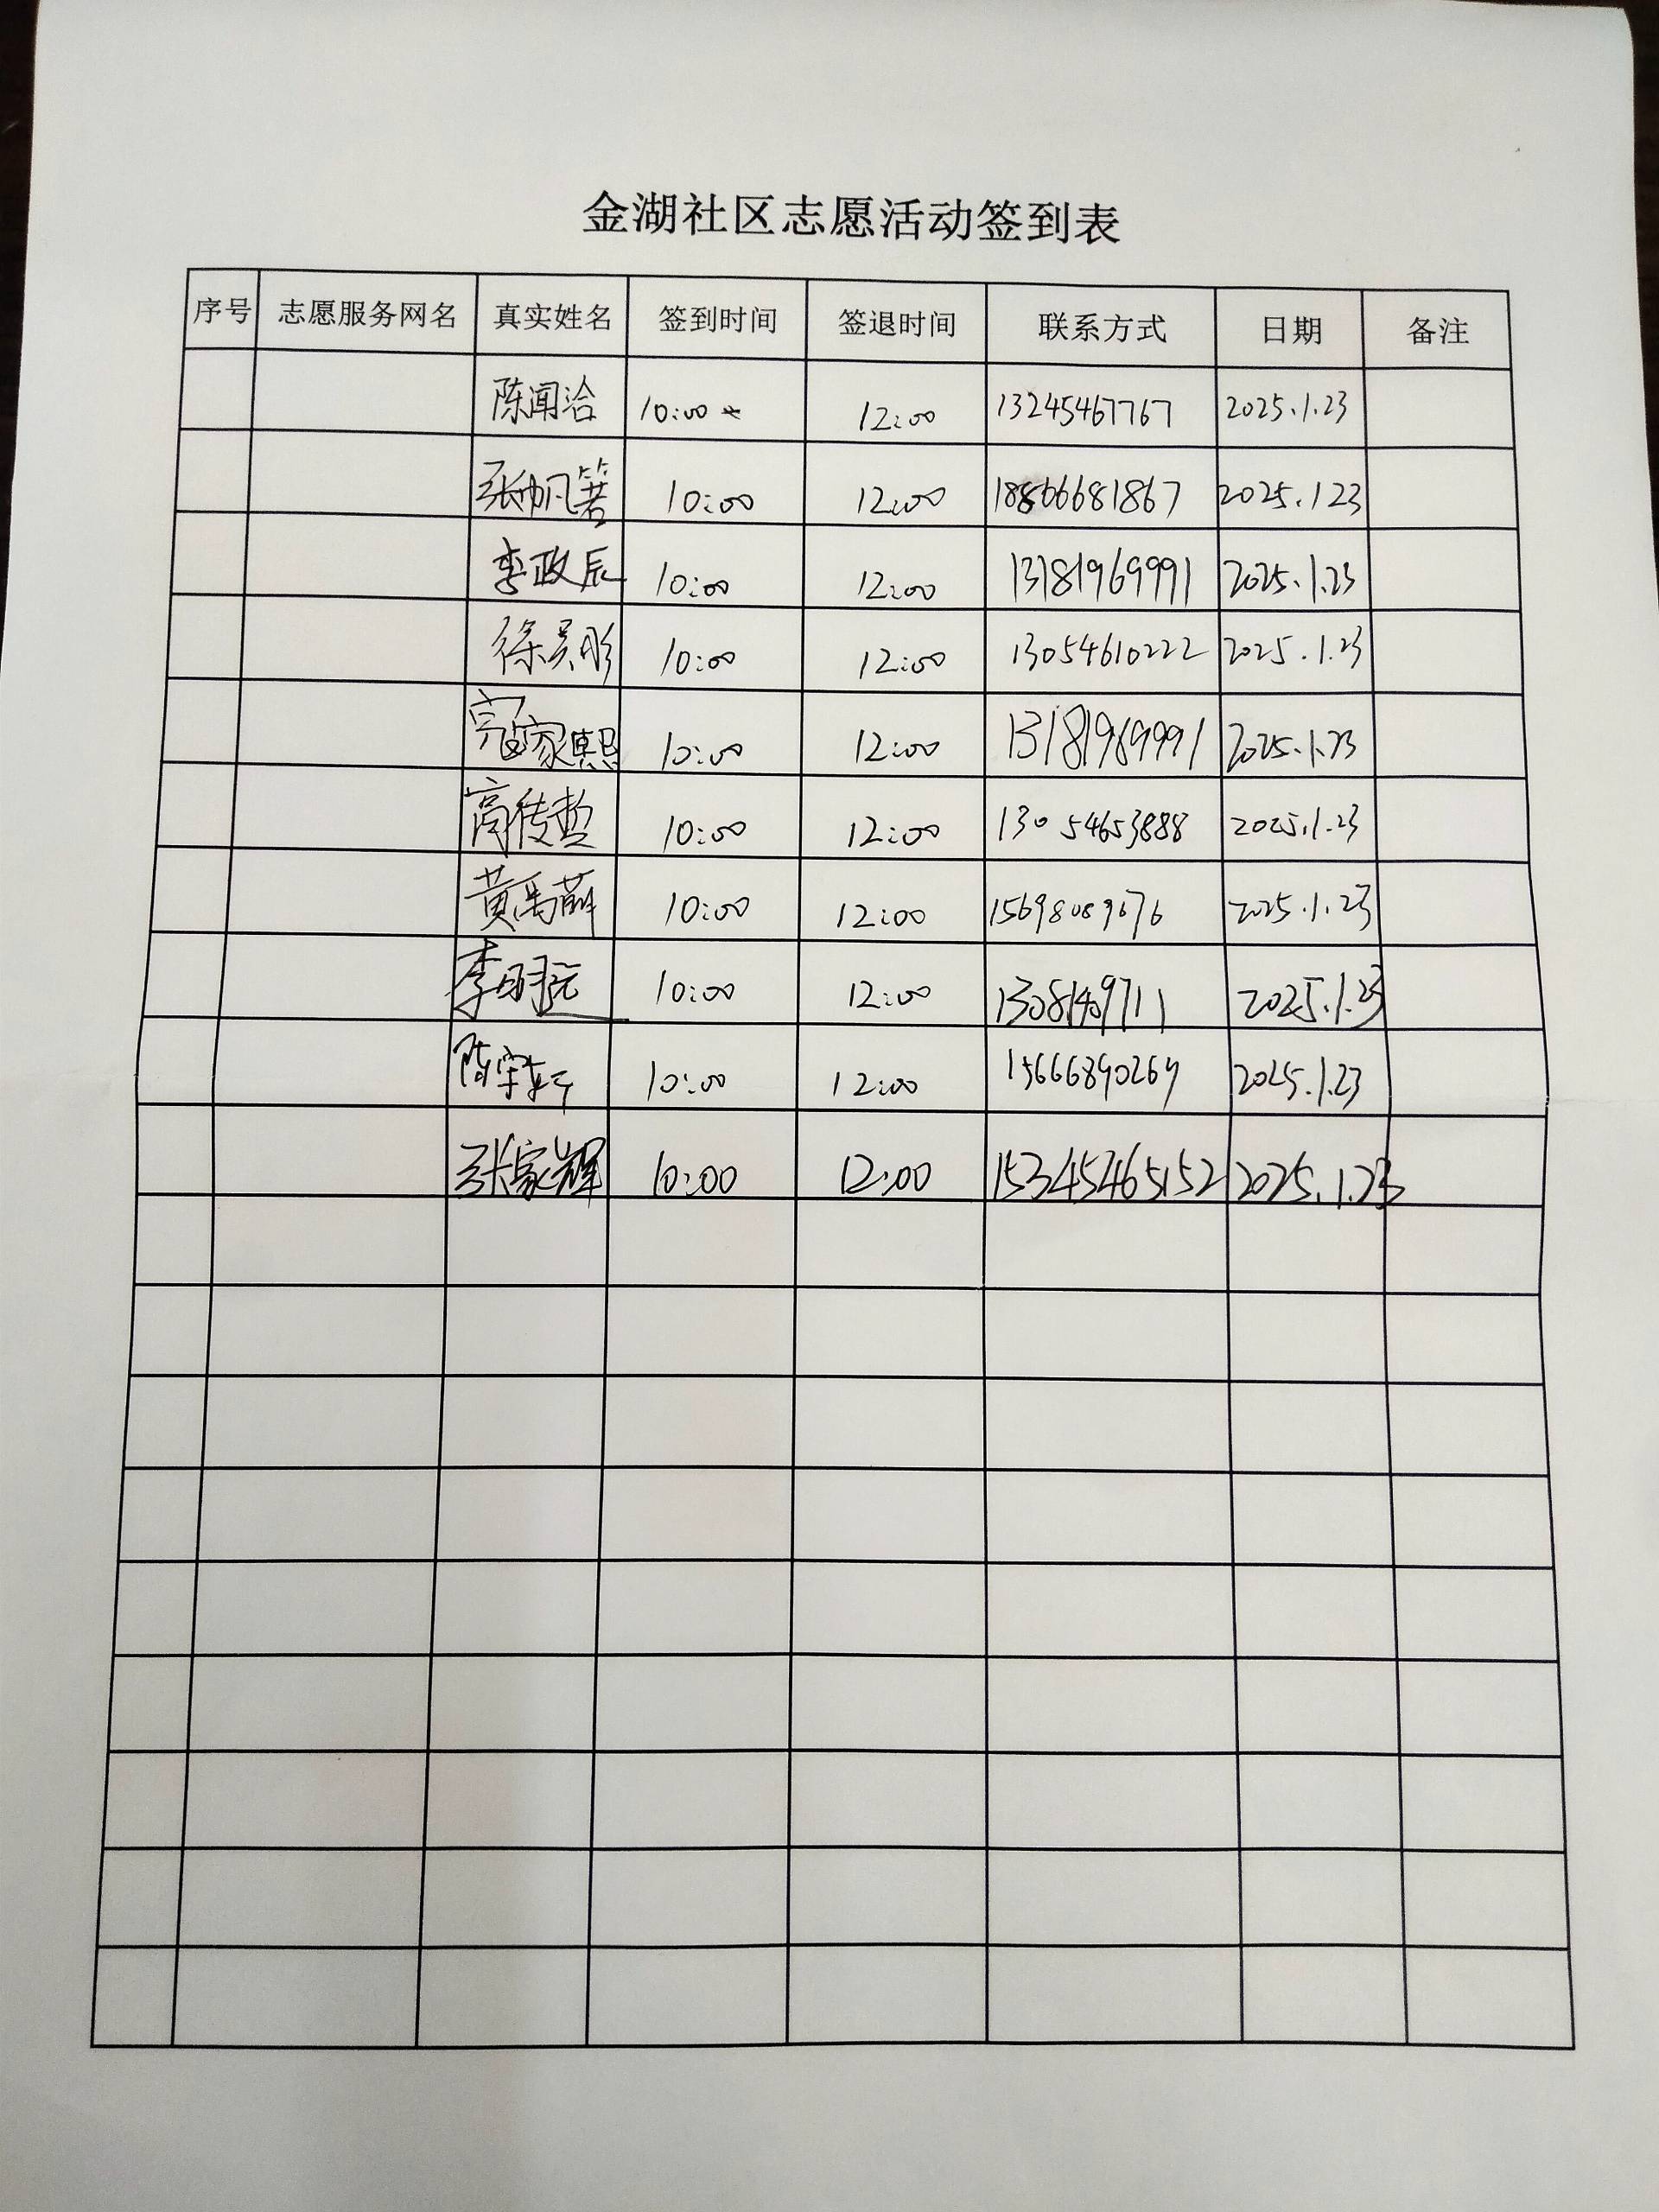 金湖社区志愿活动签到表
序号 志愿服务网名 真实姓名 签到时间 签退时间 联系方式 日期 备注
陈闻洽 10:00 12:00 13245467767 2025.1.23
张帆箸 10:00 12:00 18866681867 2025.1.23
李政辰 10:00 12:00 13181969991 2025.1.23
徐昊彤 10:00 12:00 13054610222 2025.1.23
寇家熙 10:00 12:00 13181969991 2025.1.23
高传哲 10:00 12:00 13054653888 2025.1.23
黄禹萌 10:00 12:00 15698089676 2025.1.23
李明远 10:00 12:00 2025.1.23
陈宇轩 10:00 12:00 15666890269 2025.1.23
张家辉 10:00 12:00 15345465152 2025.1.23